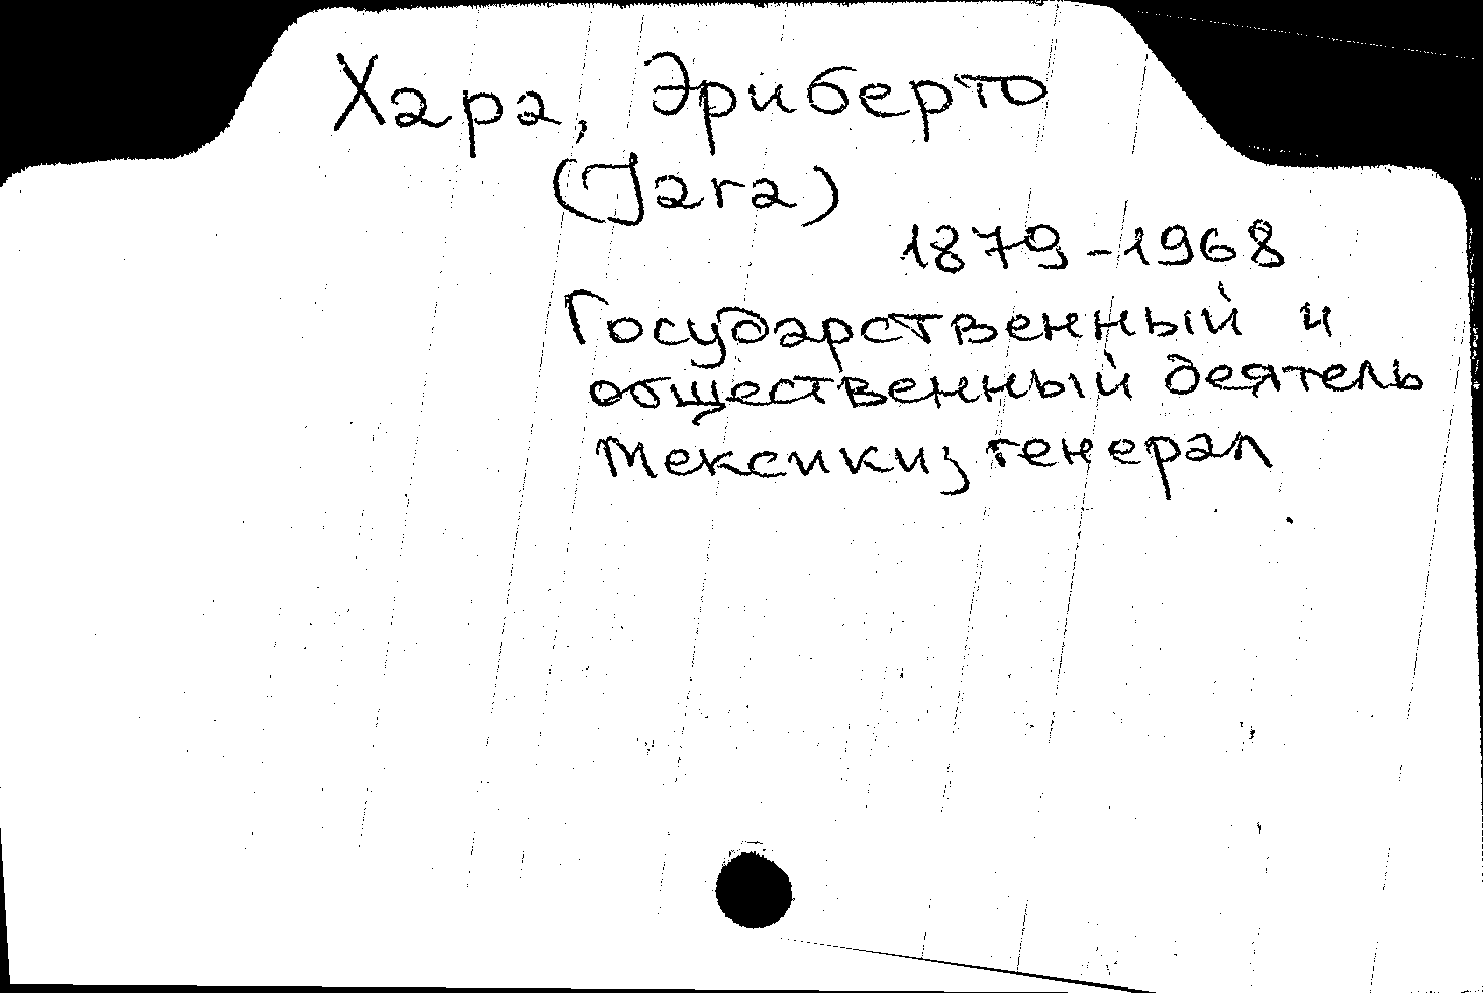 Хара, Эриберто
(Jara)
1879-1968
Государственный и
общественный деятель
Мексики, генерал